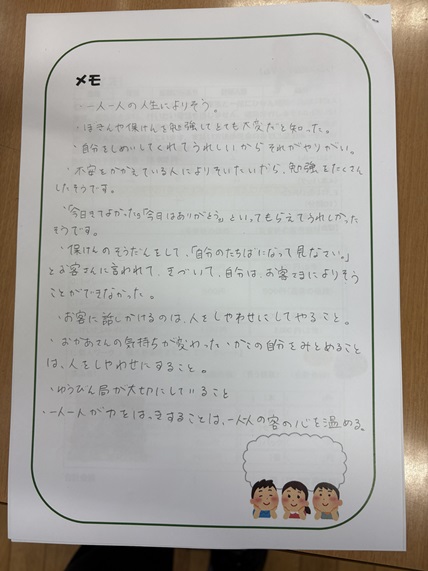 メモ
・一人一人の人生によりそう。
・ほきんや保けんを勉強してとても大変だと知った。
・自分をしめいしてくれてうれしいからそれがやりがい。
・不安をかかえている人によりそいたいだから、勉強をたくさん
したそうです。
・「今日きてよかった」「今日はありがとう。」といってもらえてうれしかった
そうです。
・保けんのそうだんをして、「自分のたちばになって見なさい。」
とお客さんに言われて、きづいて、自分は、お客さまによりそう
ことができなかった。
・お客に話しかけるのは、人をしやわせにしてやること。
・おかあさんの気持ちが変わった・かこの自分をみとめること
は、人をしやわせにすること。
・ゆうびん局が大切にしていること
・一人一人が力をはっきすることは、一人一人の客の心を温める。